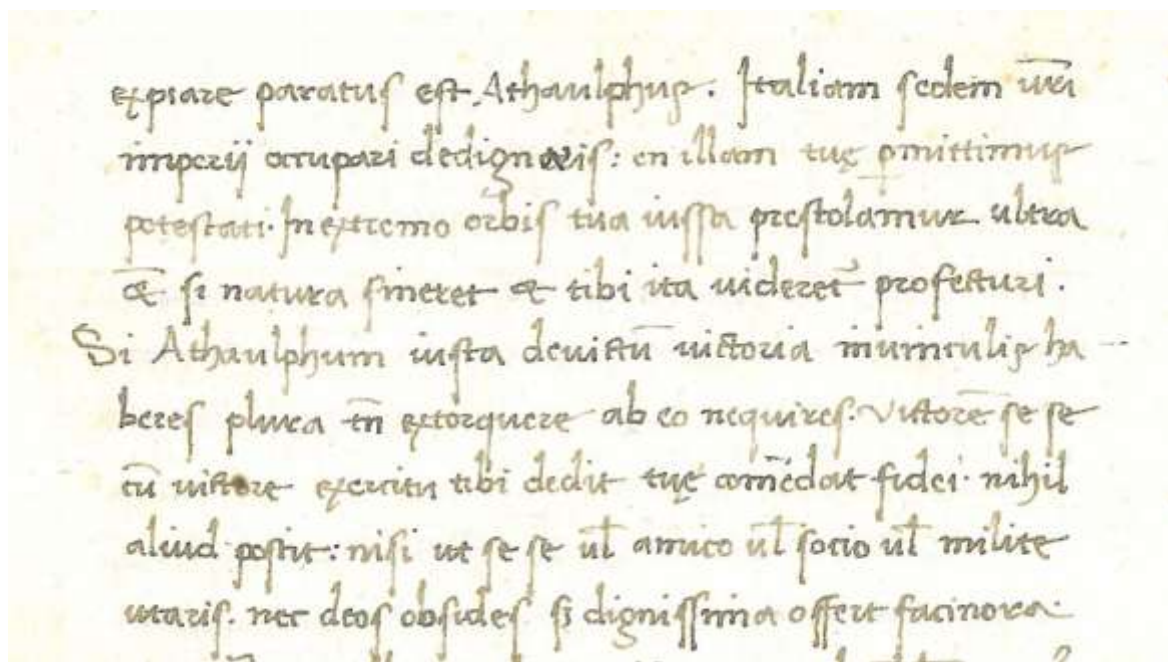 expiare paratus est Athaulphus. Italiam sedem vr̄i
imperij occupari dedignaris: en illam tuę ꝑmittimus
potestati. In extremo orbis tua iussa prestolamur ultra
& si natura sineret & tibi ita videret᷑ profecturi.
Si Athaulphum iusta devictū victoria in vinculis ha
beres plura tn̄ extorquere ab eo nequires. Victorē se se
cū victore exercitu tibi dedit tuę com̄ēdat fidei. nihil
aliud poscit: nisi ut se se ul̄ amico ul̄ socio ul̄ milite
utaris. nec deos obsides si dignissima offert facinora.